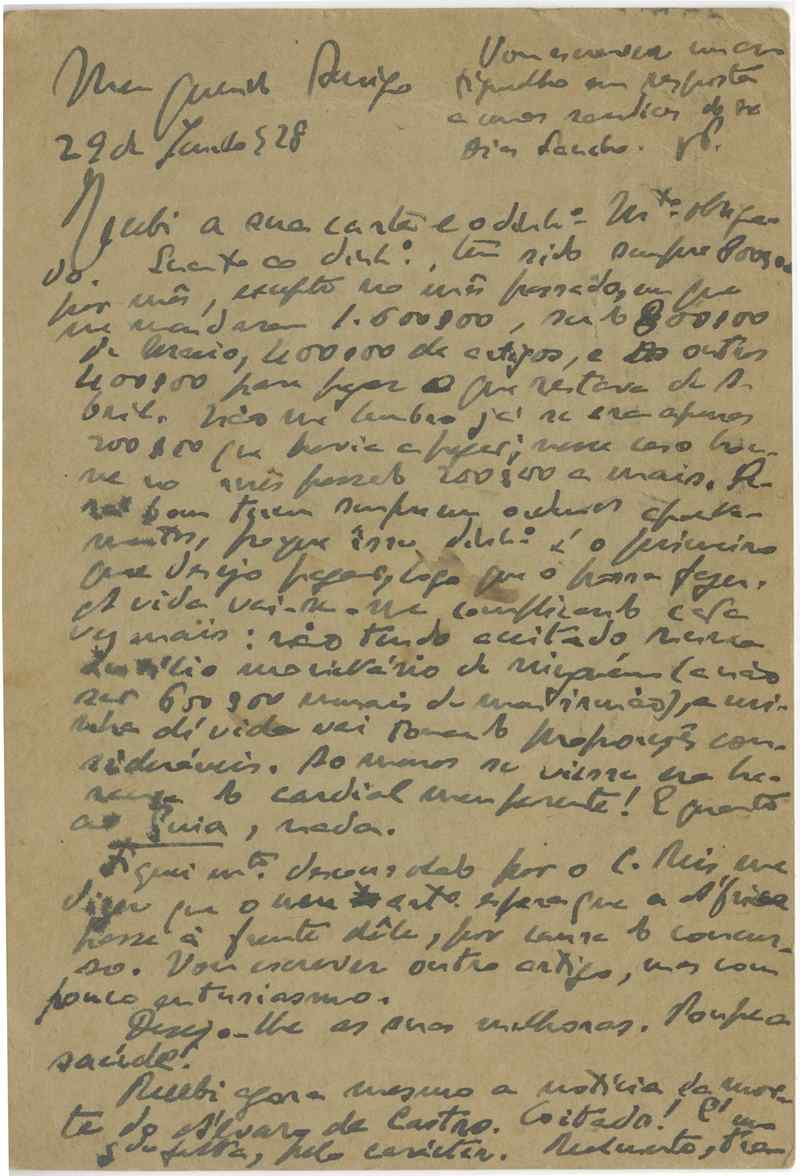 Meu querido Amigo
29 de Junho 928
Vou escrever um ar-
tiguelho em resposta
a umas do sr
Dias Sancho.
Recebi a sua carta e o dinh.º Mt.º obriga-
do. Quanto ao dinh.º, tem sido sempre 800$00
por mês, excepto no mês passado, em que
me mandaram 1.600$00, sendo 800$00
de Maio, 400$00 de artigos, e os outros
400$00 para pagar o que restava de A-
bril. Não me lembro já se era apenas
200$00 que havia a pagar; nesse caso hou-
ve no mês passado 200$00 a mais. Se-
rá bom terem sempre em ordem os aponta-
mentos, porque isso dinh.º é o primeiro
que desejo pagar, logo que o possa fazer.
A vida vai-se-me complicando cada
vez mais: não tendo aceitado nenhum
auxílio monetário de ninguém (a não
ser 600$00 mensais de meu irmão), a mi-
nha dívida vai tomando proporções con-
sideráveis. Ao menos se viesse na he-
rança do cardial meu parente! E quanto
ao Guia, nada.
Fiquei mt.º desconsolado por o C. Reis me
dizer que o meu art.º espera que a África
passe à frente dêle, por causa do concur-
so. Vou escrever outro artigo, mas com
pouco entusiasmo.
Desejo-lhe as suas melhoras. Poupe a
saúde!
Recebi agora mesmo a notícia da mor-
te do Álvaro de Castro. Coitado! É uma
gde falta, pelo carácter.